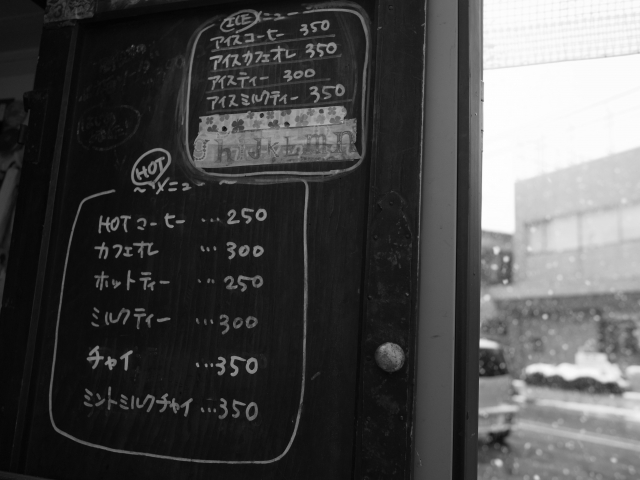 ICEメニュー
アイスコーヒー 350
アイスカフェオレ 350
アイスティー 300
アイスミルクティー 350
hIJKLMn
HOT
～メニュー～
HOTコーヒー …250
カフェオレ …300
ホットティー …250
ミルクティー …300
チャイ …350
ミントミルクチャイ …350